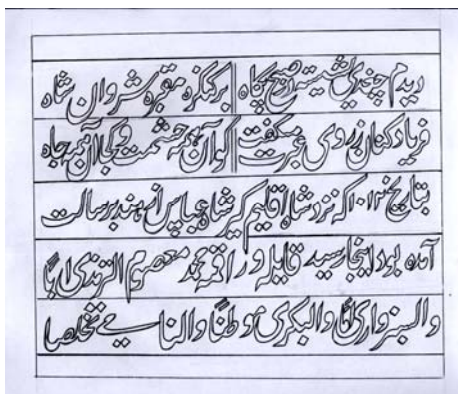 دیدم چغدی نشسته در صبح پگاه بر کنگره مقبره شروان شاه
فریاد کنان ز روی عبرت میگفت کو آن همه حشمت و کجا آن همه جاه
بتاریخ که نزد شاه اقلیم گیر شاه عباس از هند برسالت
آمده بود اینجا رسید قایله و راقمه محمد معصوم الترمذی اباً
والسبزواری اماً والبکری موطناً والنامی تخلصا